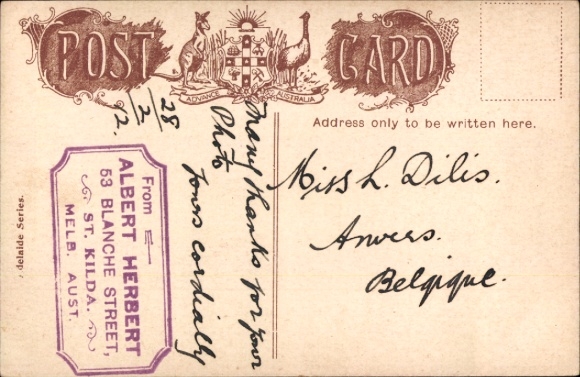 POST CARD
ADVANCE AUSTRALIA
Address only to be written here.
28/2/12.
Many thanks for your
Photo
Yours cordially
From
ALBERT HERBERT
53 BLANCHE STREET,
ST. KILDA.
MELB. AUST.
Miss L. Dilis.
Anvers.
Belgique.
delaide Series.